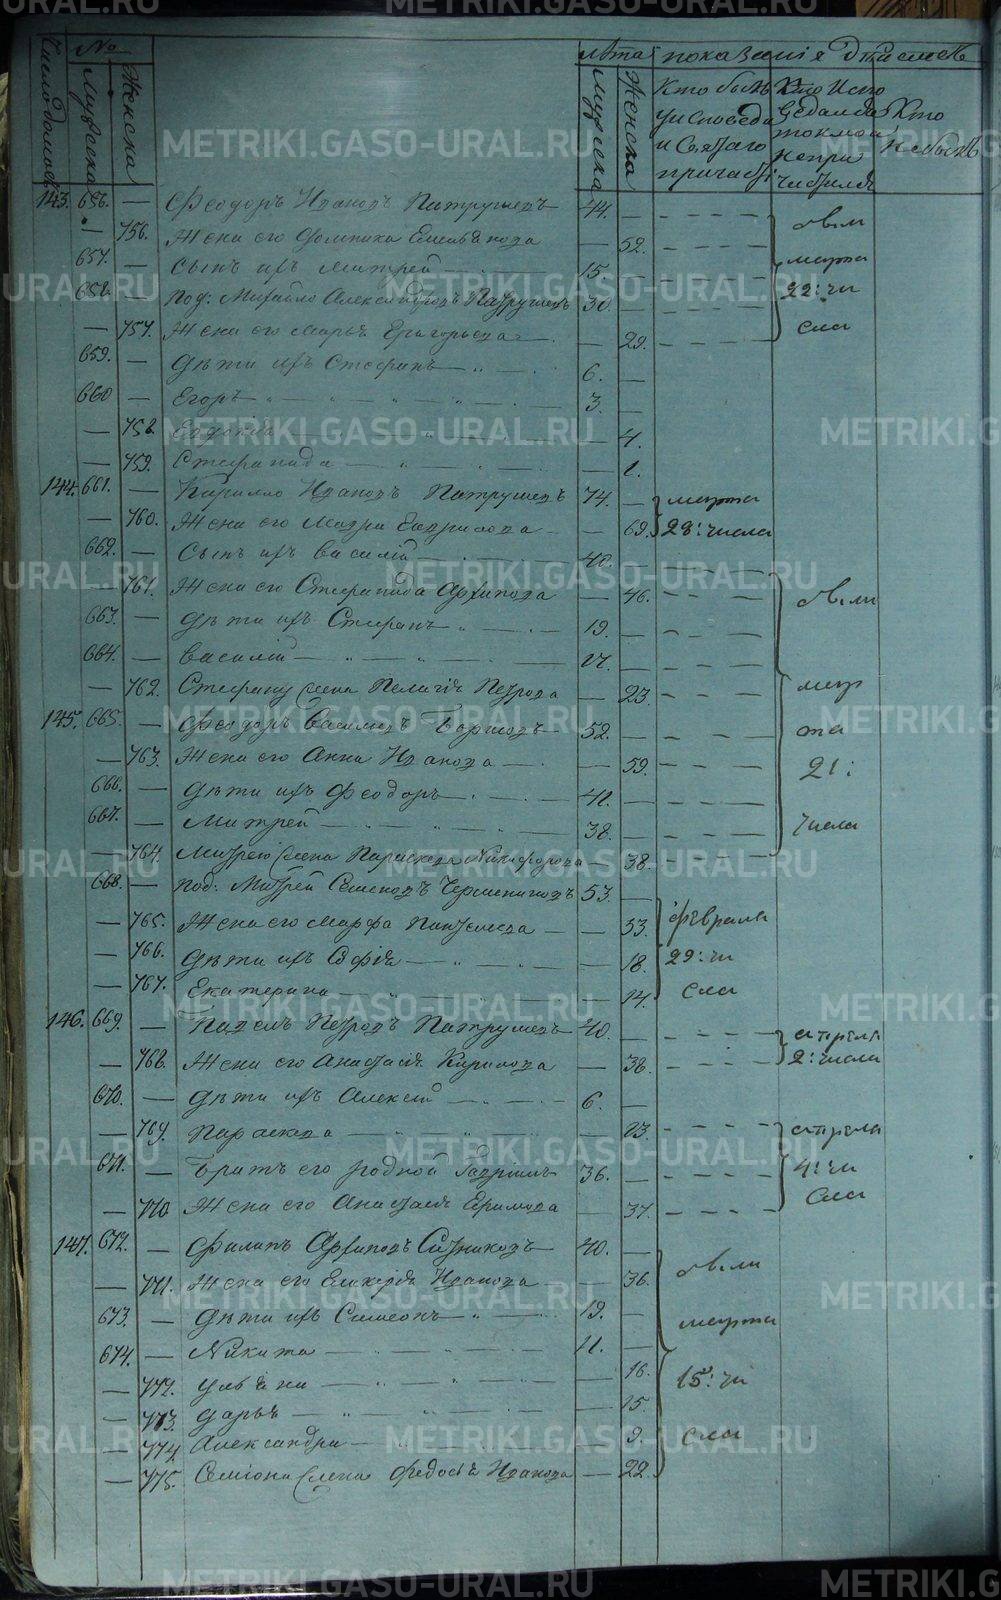 Число домовъ № Мужска Женска Лѣта мужска Женска показанія дѣйсмель
Кто былъ у исповеди и Святаго причастія
Кто исповедался токмо и непричастился
Кто не былъ
143. 656. — Феодоръ Ивановъ Патрушевъ 44. —
— 756. Жена его Домника Емельянова — 52. были
657. — Сынъ ихъ Митрей 15. — марта
658. — Под: Михайло Александровъ Патрушевъ 30. — 22: чи
— 757. Жена его Марья Григорьева — 29. сла
659. — Дѣти ихъ Стефанъ 6. —
660 — Егоръ 3. —
— 758. Евдокия — 4.
— 759. Степанида — 1.
144. 661. — Кирилло Ивановъ Патрушевъ 74. — марта
— 760. Жена его Мавра Гаврилова — 69. 28: числа
662. — Сынъ ихъ Василій 40. —
— 761. Жена его Степанида Архипова — 46. были
663. — Дѣти ихъ Стефанъ 19. —
664. — Василій 17. —
— 762. Стефану жена Пелагія Петрова — 23. мар
145. 665. — Феодоръ Васильевъ 52. — та
— 763. Жена его Анна Иванова — 59. 21:
666. — Дѣти ихъ Феодоръ 41. —
667. — Митрей 38. — числа
— 764. Митрею жена Параскева Никифорова — 38.
668. — Под: Митрей Семеновъ 53. —
— 765. Жена его Марфа — 53. февраля
— 766. Дѣти ихъ Софія — 18. 29: чи
— 767. Екатерина — 14. сла
146. 669. — Павелъ Петровъ Патрушевъ 40. — апреля
— 768. Жена его Анастасія Кирилова — 38. 2: числа
670. — Дѣти ихъ Алексій 6. —
— 769. Параскева — 13. апреля
671. — Братъ его родной Гавріилъ 36. — 4: чи
— 770 Жена его Анастасія Ефимова — 37. сла
147. 672. — Филипъ Архиповъ Ситниковъ 40. — были
— 771. Жена его Гликерія Иванова — 36.
673. — Дѣти ихъ Симеонъ 19. — марта
674. — Никита 11. —
— 772. Ульяна — 16. 15: чи
— 773. Дарья — 15.
— 774. Александра — 9. сла
— 775. Семіона жена Федосья Иванова — 22.
METRIKI.GASO-URAL.RU